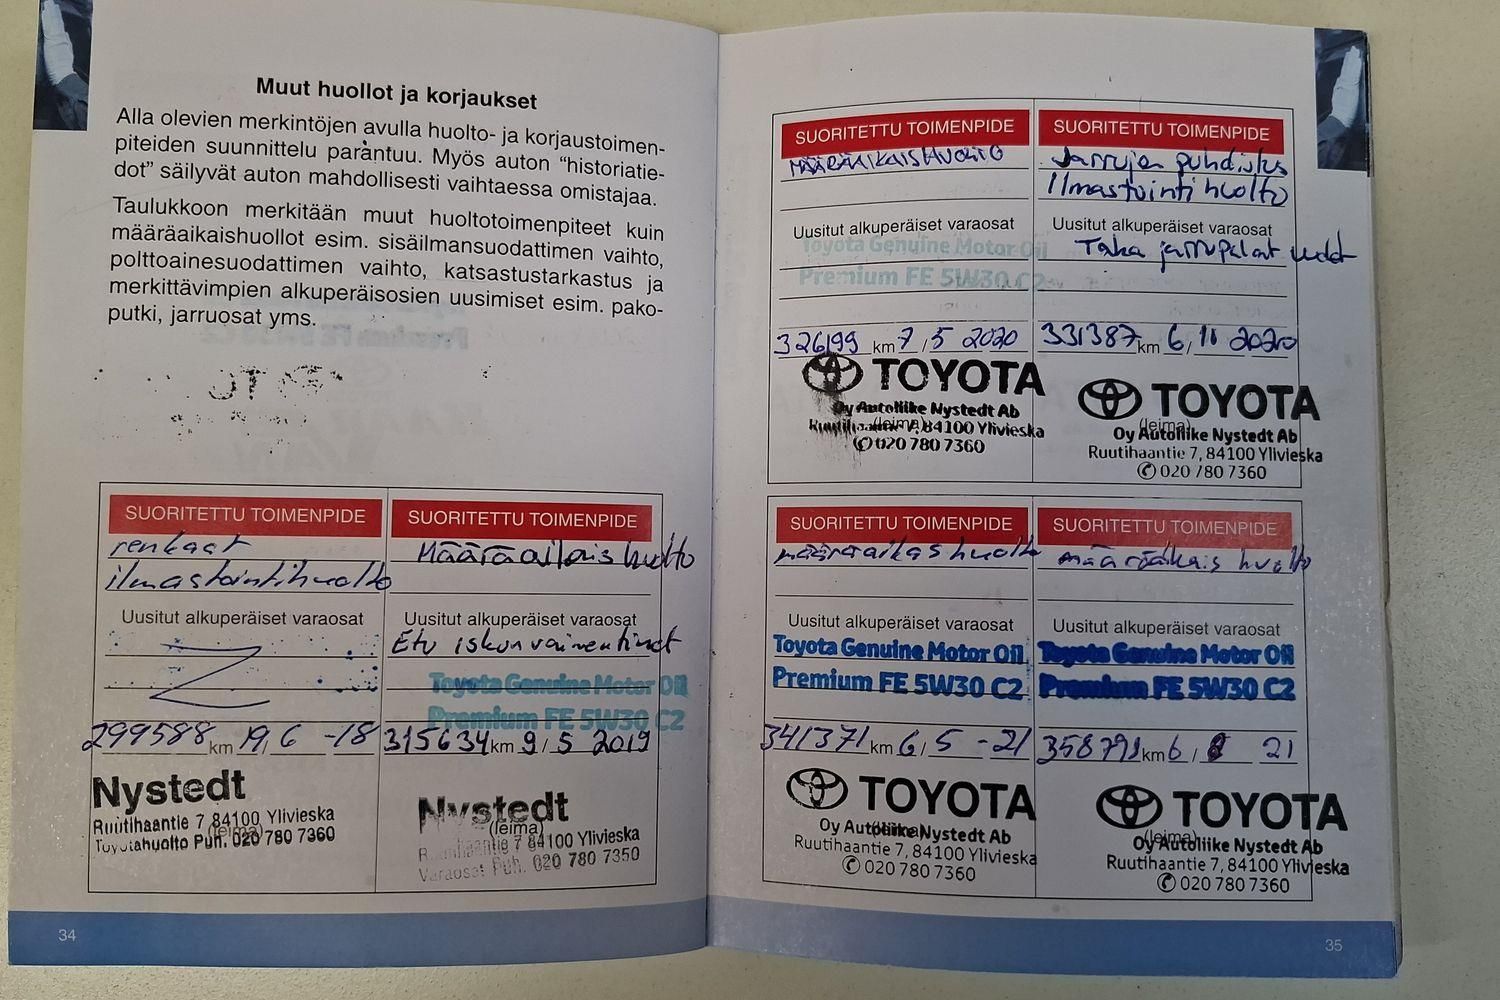 Muut huollot ja korjaukset
Alla olevien merkintöjen avulla huolto- ja korjaustoimen-
piteiden suunnittelu parantuu. Myös auton “historiatie-
dot” säilyvät auton mahdollisesti vaihtaessa omistajaa.
Taulukkoon merkitään muut huoltotoimenpiteet kuin
määräaikaishuollot esim. sisäilmansuodattimen vaihto,
polttoainesuodattimen vaihto, katsastustarkastus ja
merkittävimpien alkuperäisosien uusimiset esim. pako-
putki, jarruosat yms.
SUORITETTU TOIMENPIDE
renkaat
ilmastointihuolto
Uusitut alkuperäiset varaosat
299588 km 19/6 -18
Nystedt
Ruutihaantie 7 84100 Ylivieska
(leima)
Toyotahuolto Puh. 020 780 7360
SUORITETTU TOIMENPIDE
Määräaikais huolto
Uusitut alkuperäiset varaosat
Etu iskunvaimentimet
Toyota Genuine Motor Oil
Premium FE 5W30 C2
315634 km 9/5 2019
Nystedt
(leima)
Ruutihaantie 7 84100 Ylivieska
Varaosat Puh. 020 780 7350
34
SUORITETTU TOIMENPIDE
MÄÄRÄAIKAISHUOLTO
Uusitut alkuperäiset varaosat
Toyota Genuine Motor Oil
Premium FE 5W30 C2
326199 km 7/5 2020
TOYOTA
Oy Autoliike Nystedt Ab
(leima)
Ruutihaantie 7, 84100 Ylivieska
020 780 7360
SUORITETTU TOIMENPIDE
Jarrujen puhdistus
Ilmastointi huolto
Uusitut alkuperäiset varaosat
Taka jarrupalat uudet
331387 km 6/11 2020
TOYOTA
(leima)
Oy Autoliike Nystedt Ab
Ruutihaantie 7, 84100 Ylivieska
020 780 7360
SUORITETTU TOIMENPIDE
määräaikas huolto
Uusitut alkuperäiset varaosat
Toyota Genuine Motor Oil
Premium FE 5W30 C2
341371 km 6/5 -21
TOYOTA
Oy Autoliike Nystedt Ab
(leima)
Ruutihaantie 7, 84100 Ylivieska
020 780 7360
SUORITETTU TOIMENPIDE
määräaikais huolto
Uusitut alkuperäiset varaosat
Toyota Genuine Motor Oil
Premium FE 5W30 C2
358791 km 6/ 21
TOYOTA
(leima)
Oy Autoliike Nystedt Ab
Ruutihaantie 7, 84100 Ylivieska
020 780 7360
35